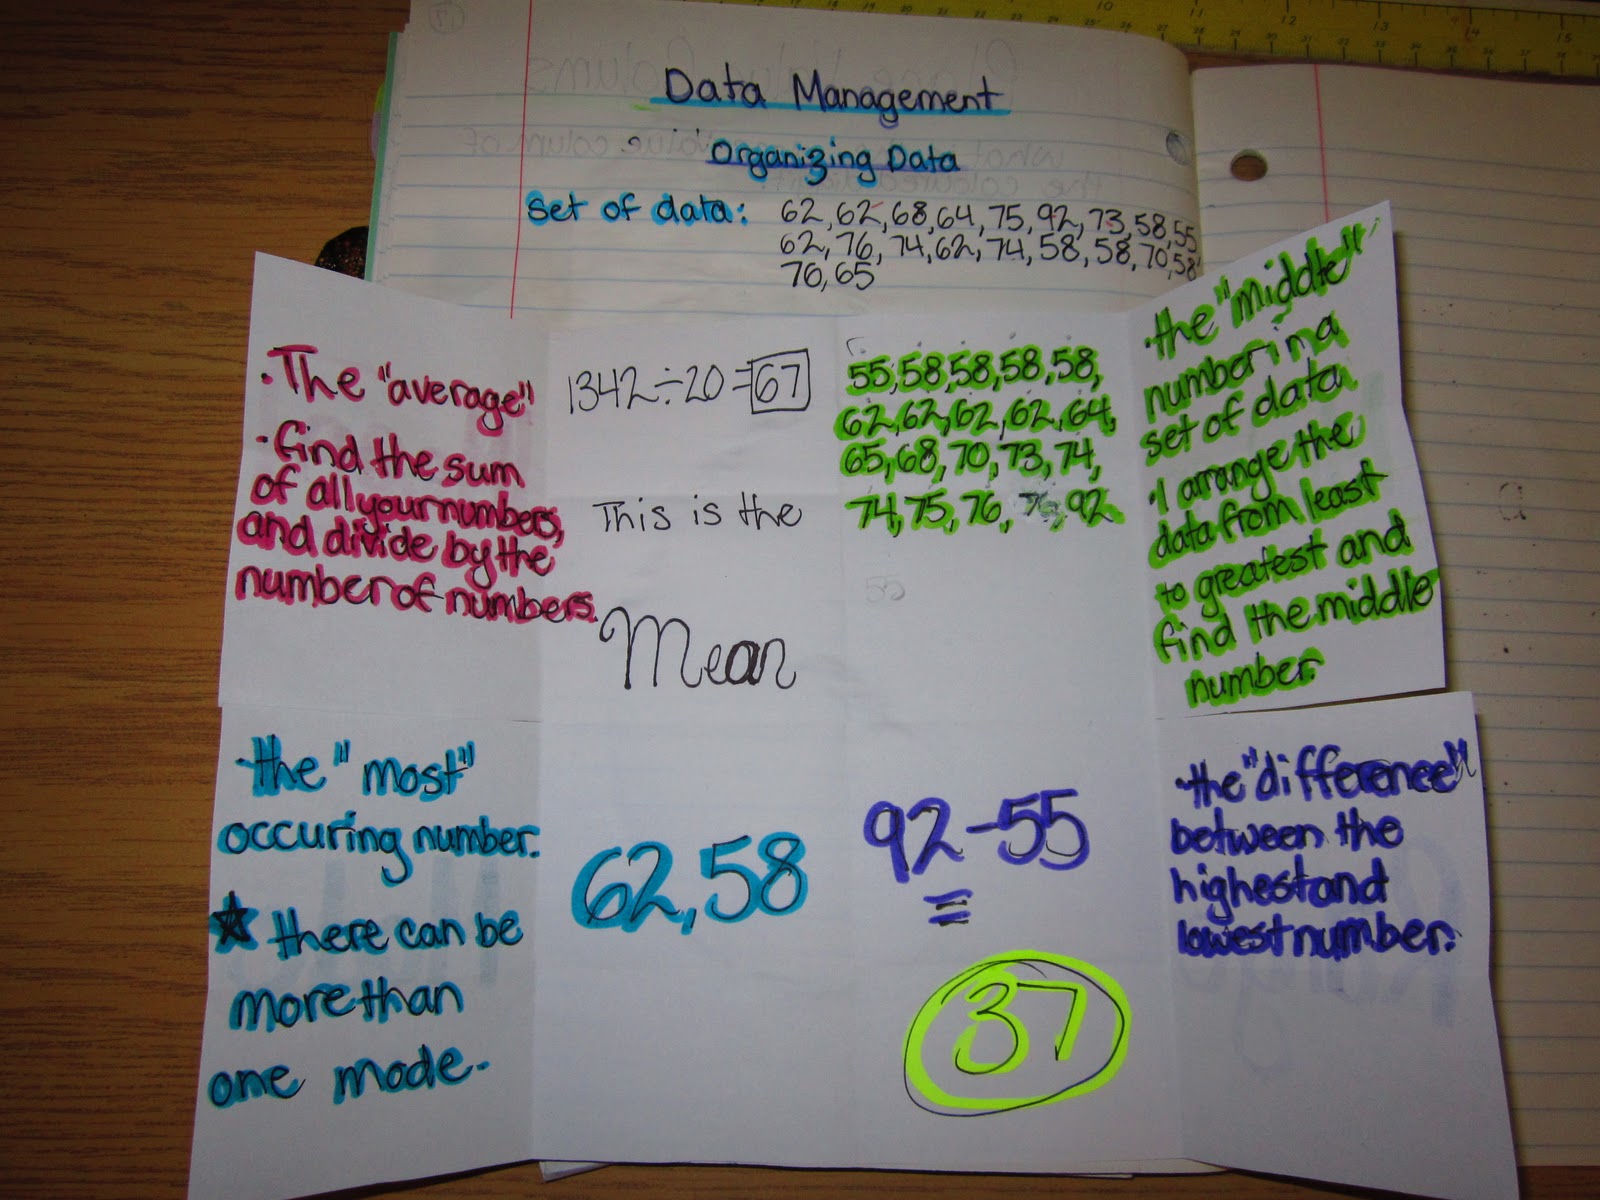 Data Management
Organizing Data
Set of data: 62, 62, 68, 64, 75, 92, 73, 58, 55
62, 76, 74, 62, 74, 58, 58, 70, 58
76, 65
• The "average"
• find the sum
of all your numbers,
and divide by the
number of numbers.
1342 ÷ 20 = 67
This is the
Mean
55, 58, 58, 58, 58,
62, 62, 62, 62, 64,
65, 68, 70, 73, 74,
74, 75, 76, 76, 92
• the "middle"
number in a
set of data
• I arrange the
data from least
to greatest and
find the middle
number.
• the "most"
occuring number.
★ there can be
more than
one mode.
62, 58
92 - 55
=
37
• the "difference"
between the
highest and
lowest number.